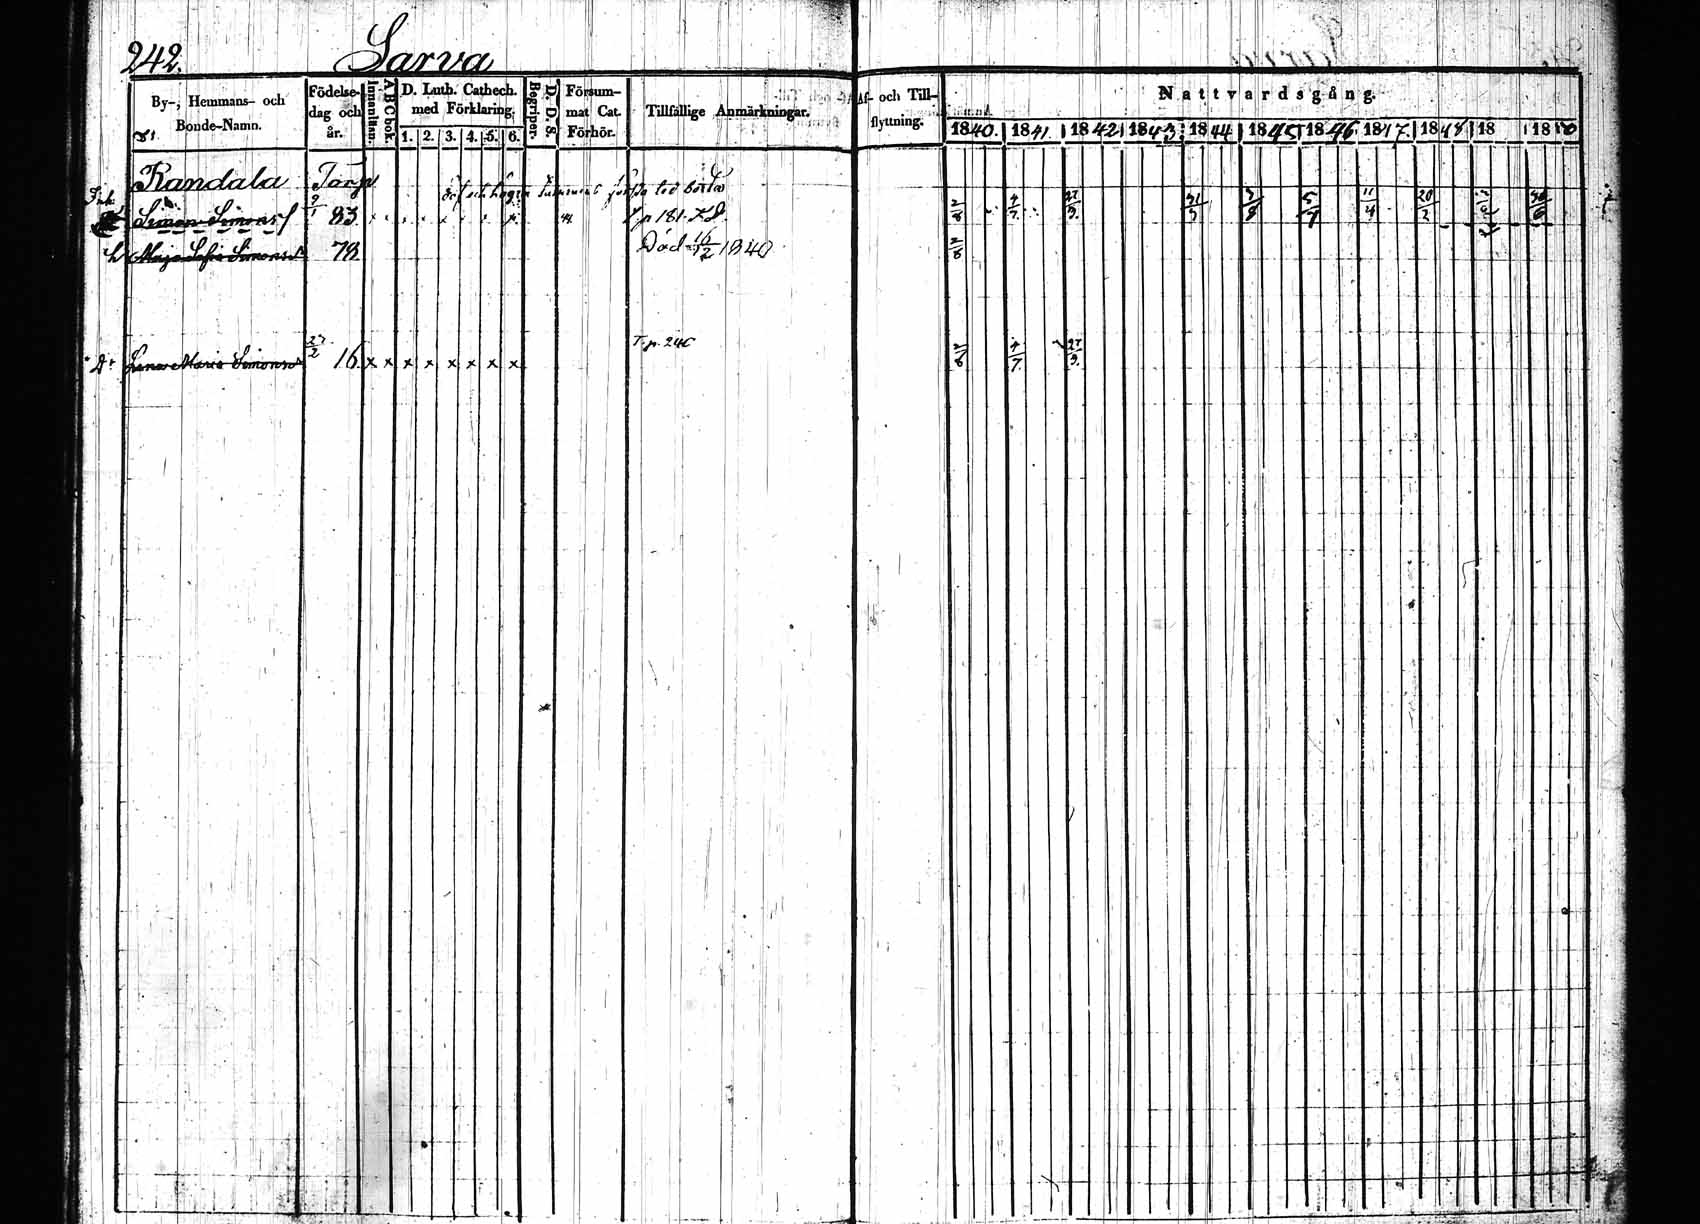 242. Sarva
By-, Hemmans- och Bonde-Namn.
Födelse-dag och år.
Innanläsn.
A B C bok.
D. Luth. Cathech. med Förklaring.
1. 2. 3. 4. 5. 6.
D. D. S. Begriper.
Försum-mat Cat. Förhör.
Tillfällige Anmärkningar.
Af- och Till-flyttning.
Nattvardsgång.
1840. 1841. 1842 1843. 1844 1845 1846 1847. 1848 18 1850
Kandala Torp
Simon Simons 9/1 83 p 181. 2/8 4/7 5/7 11/4 20/2
h Maja Lisa Simonsd 78 Död 16/12 1840 2/8
Dr Lena Maria Simonsd 27/2 16 x x x x x x x x T. p. 246 2/8 4/7 27/9